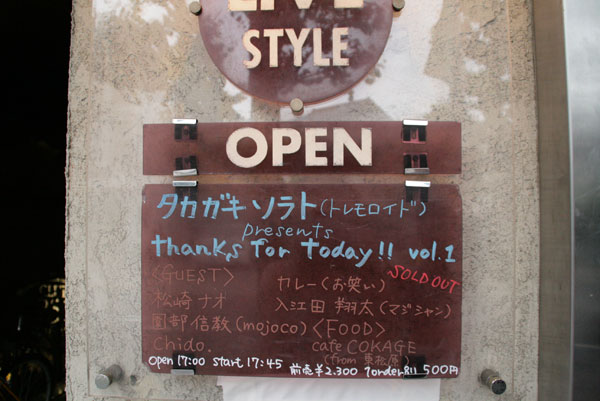 LIVE
STYLE
OPEN
タカガキ ソラト(トレモロイド)
presents
thanks for today!! vol.1
<GUEST> カレー(お笑い) SOLD OUT
松崎ナオ 入江田 翔太(マジシャン)
園部信教(mojoco) <FOOD>
Chido. cafe COKAGE
(from 東松原)
open 17:00 start 17:45 前売¥2.300 1order別 500円